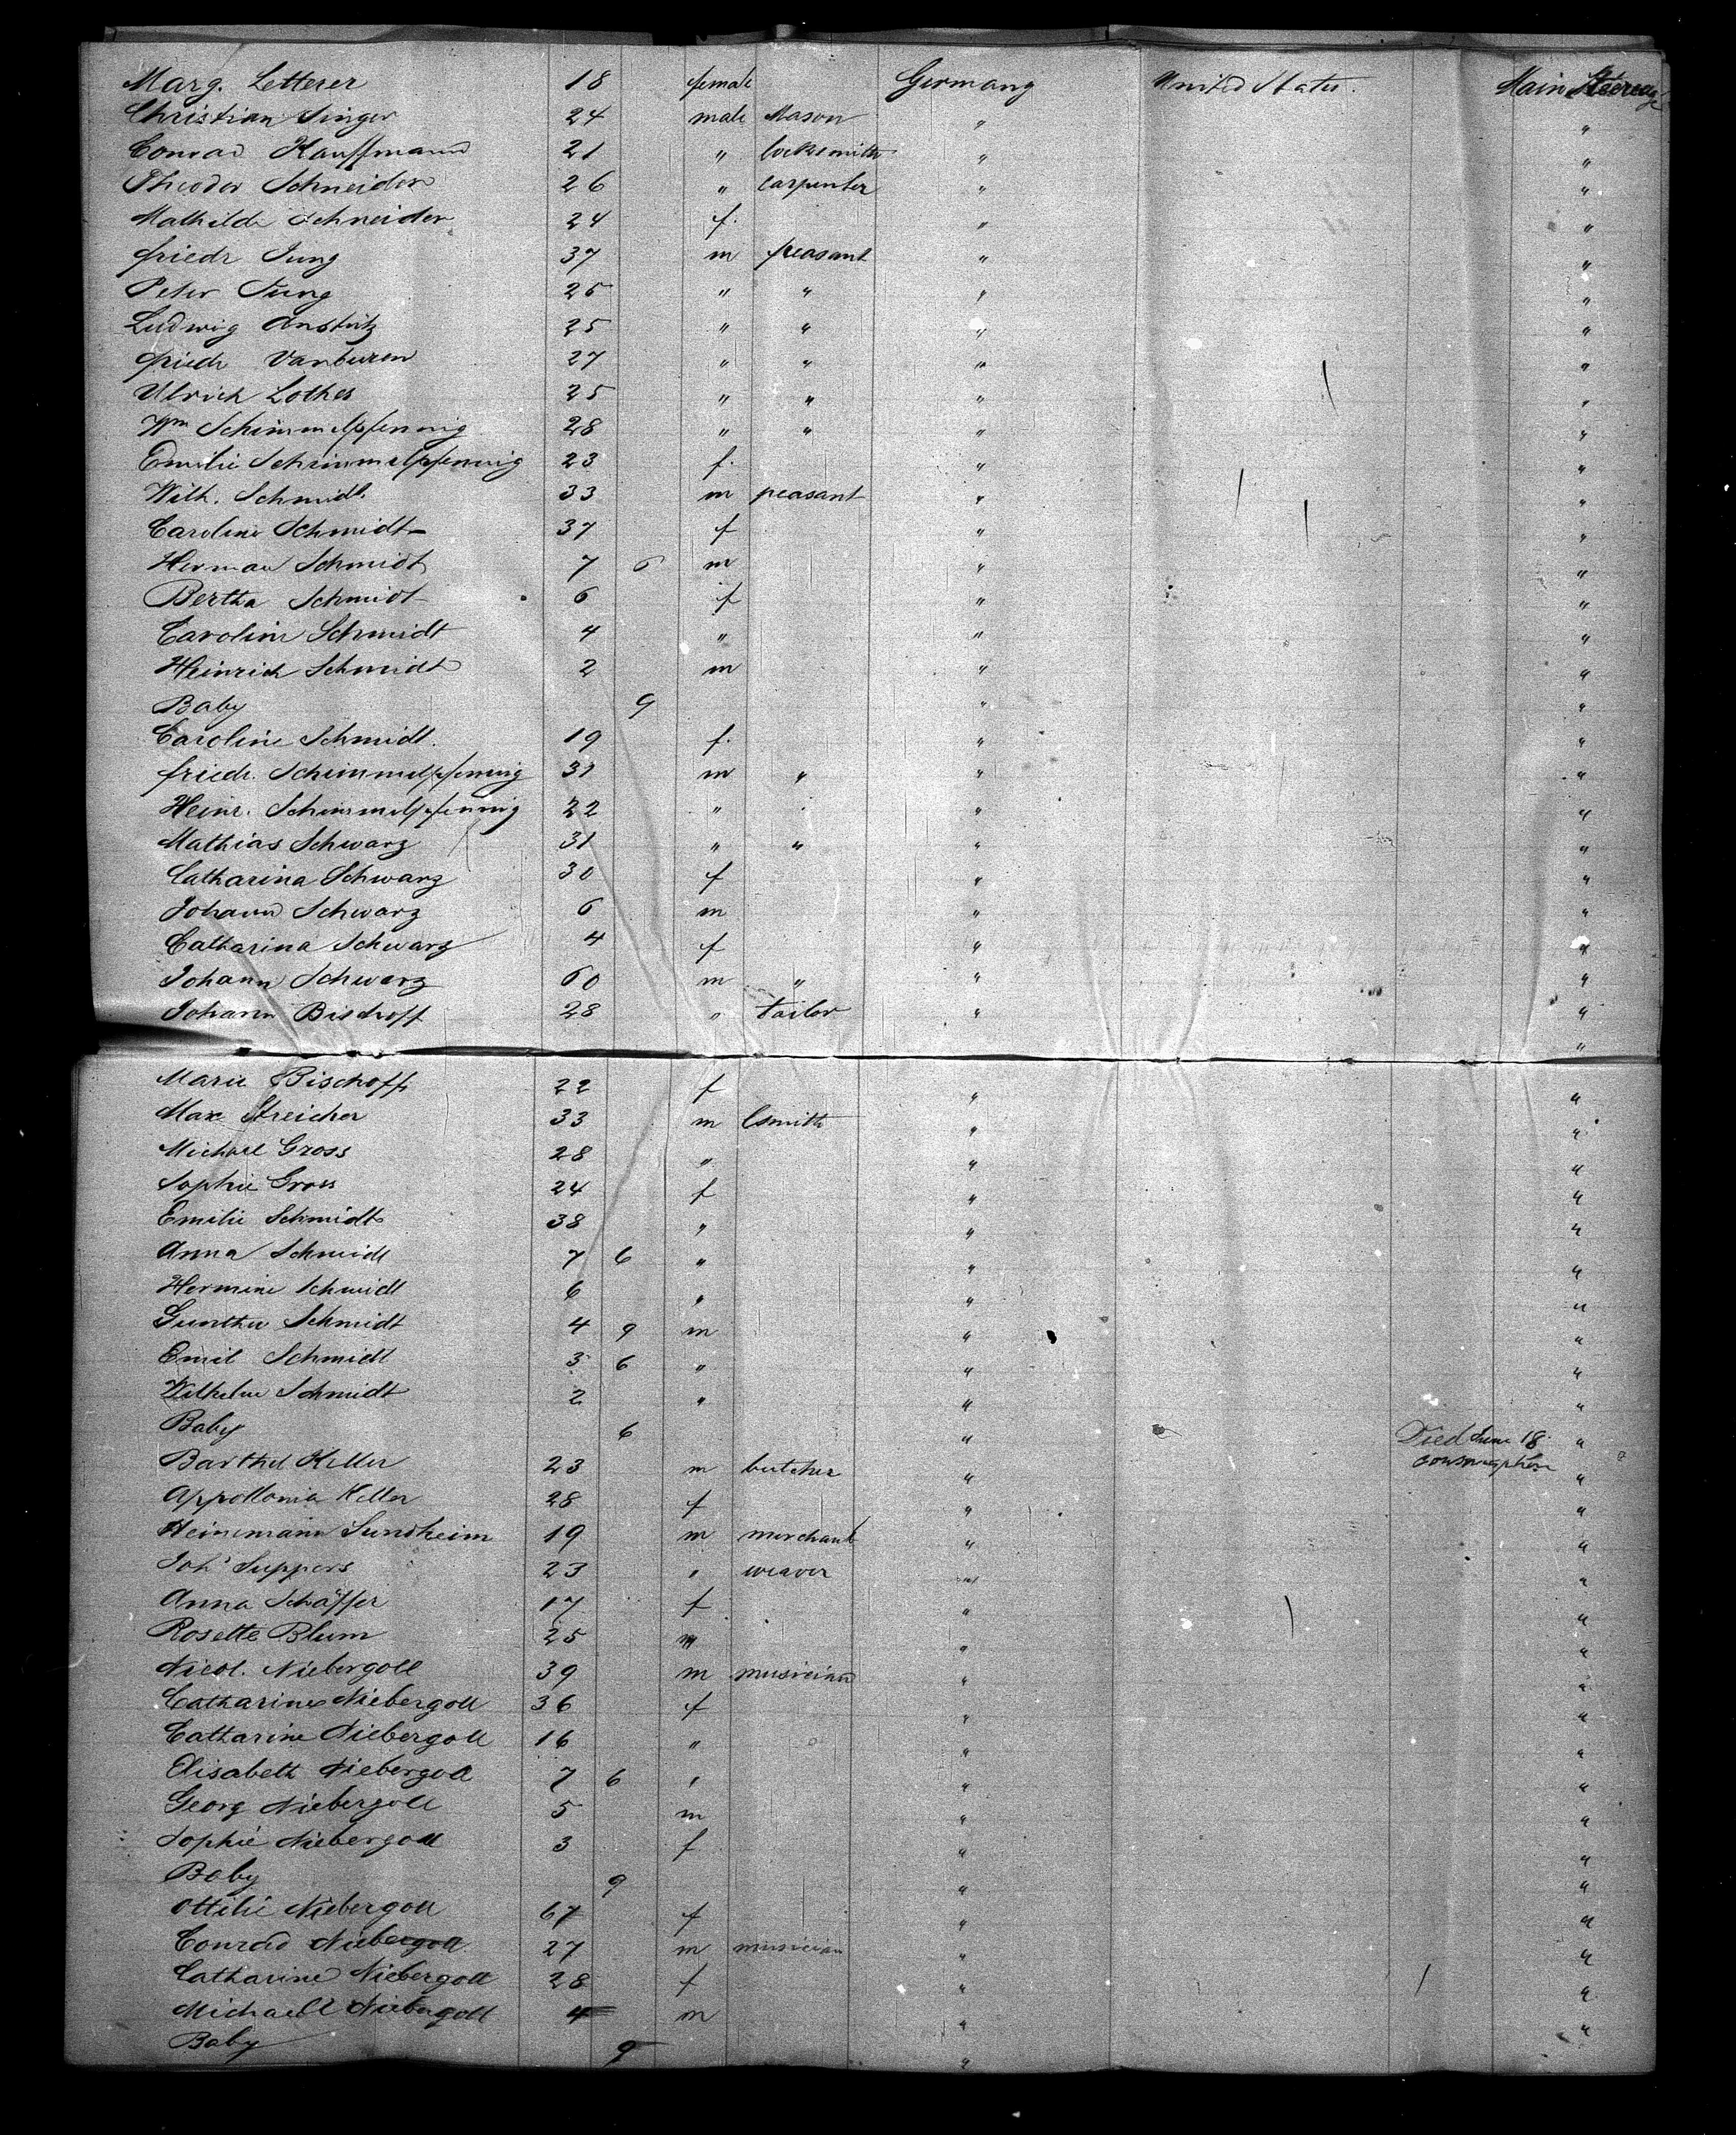 Marg. Letterer 18 female Germany United States. Main Steerage
Christian Singer 24 male Mason " "
Conrad Kauffmann 21 " locksmith " "
Theodor Schneider 26 " carpenter " "
Mathilde Schneider 24 f. " "
friedr Jung 37 m peasant " "
Peter Jung 25 " " " "
Ludwig Anstütz 25 " " " "
friedr Vanburen 27 " " " "
Ulrich Lothes 25 " " " "
Wm Schimmelpfennig 28 " " " "
Emilie Schimmelpfennig 23 f. " "
Wilh. Schmidt 33 m peasant " "
Caroline Schmidt 37 f " "
Herman Schmidt 7 6 m " "
Bertha Schmidt 6 f " "
Carolin Schmidt 4 " " "
Heinrich Schmidt 2 m " "
Baby 9 " "
Caroline Schmidt. 19 f. " "
friedr. Schimmelpfennig 31 m " " "
Heinr. Schimmelpfennig 22 " " " "
Mathias Schwarz 31 " " " "
Catharina Schwarz 30 f " "
Johann Schwarz 6 m " "
Catharina Schwarz 4 f " "
Johann Schwarz 60 m " " "
Johann Bischoff 28 " tailor " "
"
Marie Bischoff 22 f " "
Max Streicher 33 m smith " "
Michael Gross 28 " " "
Sophie Gross 24 f " "
Emilie Schmidt 38 " " "
Anna Schmidt 7 6 " " "
Hermine Schmidt 6 " " "
Gunther Schmidt 4 9 m " "
Emil Schmidt 3 6 " " "
Wilhelm Schmidt 2 " " "
Baby 6 " Died June 18. "
Barthel Keller 23 m butcher " consumption "
Appollonia Keller 28 f " "
Heinemann Sundheim 19 m merchant " "
Joh' Suppers 23 " weaver " "
Anna Schäffer 17 f " "
Rosette Blum 25 " " "
Nicol. Niebergoll 39 m musician " "
Catharine Niebergoll 36 f " "
Catharine Niebergoll 16 " " "
Elisabeth Niebergoll 7 6 " " "
Georg Niebergoll 5 m " "
Sophie Niebergoll 3 f " "
Baby 9 " "
Ottilie Niebergoll 67 f " "
Conrad Niebergoll 27 m musician " "
Catharine Niebergoll 28 f " "
Michael Niebergoll 4 m " "
Baby 9 "